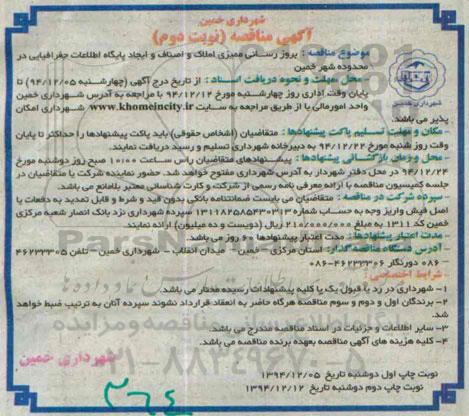 شهرداری خمین
آگهی مناقصه (نوبت دوم)
موضوع مناقصه : بروز رسانی ممیزی املاک و اصناف و ایجاد پایگاه اطلاعات جغرافیایی در
محدوده شهر خمین
محل مهلت و نحوه دریافت اسناد : از تاریخ درج آگهی (چهارشنبه ۹۴/۱۲/۰۵) تا
پایان وقت اداری روز چهارشنبه مورخ ۹۴/۱۲/۱۲ با مراجعه به آدرس شهرداری خمین
واحد امورمالی یا از طریق مراجعه به سایت www.khomeincity.ir شهرداری امکان
پذیر می باشد.
شهرداری خمین
مکان و مهلت تسلیم پاکت پیشنهادها : متقاضیان (اشخاص حقوقی) باید پاکت پیشنهادها را حداکثر تا پایان
وقت روز شنبه مورخ ۹۴/۱۲/۲۲ به دبیرخانه شهرداری تسلیم و رسید دریافت نمایند.
محل و زمان بازگشائی پیشنهادها : پیشنهادهای متقاضیان راس ساعت ۱۰:۰۰ صبح روز دوشنبه مورخ
۹۴/۱۲/۲۴ در محل دفتر شهردار به آدرس شهرداری مفتوح خواهد شد. حضور نماینده شرکت یا متقاضیان در
جلسه کمیسیون مناقصه با ارائه معرفی نامه رسمی از شرکت و کارت شناسائی معتبر بلامانع می باشد.
سپرده شرکت در مناقصه : متقاضیان می بایست ضمانتنامه بانکی بدون قید و شرط و قابل تمدید به دفعات یا
اصل فیش واریز وجه به حساب شماره ۱۳۱۱۸۲۵۸۵۴۳۰۳۱۳ سپرده شهرداری نزد بانک انصار شعبه مرکزی
خمین کد ۱۳۱۱ به مبلغ ۲۱۰/۰۰۰/۰۰۰ ریال (دویست و ده میلیون) ارائه نمایند.
مدت اعتبار پیشنهادها : مدت اعتبار پیشنهادها ۹۰ روز می باشد.
آدرس دستگاه مناقصه گذار: استان مرکزی - خمین - میدان انقلاب - شهرداری خمین - تلفن ۴۶۲۲۳۳۰۵
- ۰۸۶ دورنگار ۴۶۲۲۳۳۰۶-۰۸۶
شرایط اختصاصی :
۱- شهرداری در رد یا قبول یک یا کلیه پیشنهادات رسیده مختار می باشد.
۲- برندگان اول و دوم و سوم مناقصه هرگاه حاضر به انعقاد قرارداد نشوند سپرده آنان به ترتیب ضبط خواهد
شد.
۳- سایر اطلاعات و جزئیات در اسناد مناقصه مندرج می باشد.
۴- کلیه هزینه های آگهی مناقصه بعهده برنده مناقصه می باشد.
شهرداری خمین
نوبت چاپ اول دوشنبه تاریخ ۱۳۹۴/۱۲/۰۵
نوبت چاپ دوم دوشنبه تاریخ ۱۳۹۴/۱۲/۱۲
۳۶۴
۰۲۱-۸۸۳۴۹۶۷۰-۵